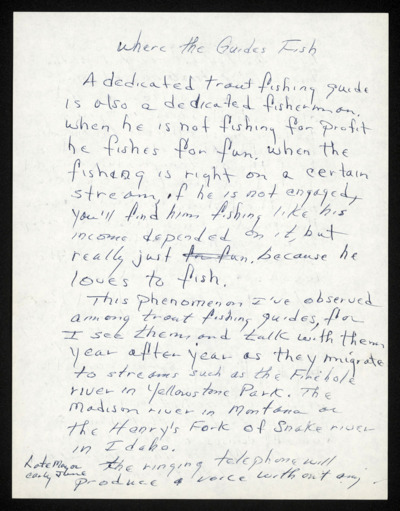 Where the Guides Fish
A dedicated trout fishing guide
is also a dedicated fisherman.
When he is not fishing for profit
he fishes for fun. When the
fishing is right on a certain
stream, if he is not engaged,
you'll find him fishing like his
income depended on it, but
really just for fun, because he
loves to fish.
This phenomenon I've observed
among trout fishing guides, for
I see them and talk with them
year after year as they migrate
to streams such as the Firehole
river in Yellowstone Park. The
Madison river in Montana or
the Henry's Fork of Snake river
in Idaho.
Late May or
early June
the ringing telephone will
produce a voice without any